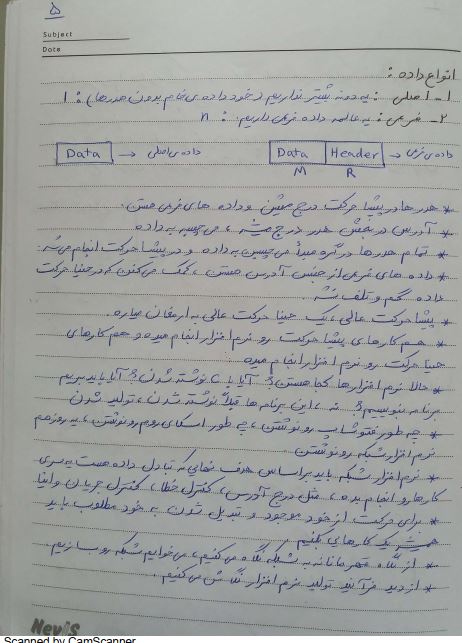 ۵
Subject
Date
انواع داده :
۱- اصلی : یه دونه بیشتر نداریم (خود داده ی خام بدون هدرها) : ۱
۲- فرعی : یه عالمه داده فرعی داریم : n
Data → داده ی اصلی Data Header → داده ی فرعی
M R
* هدرها در پیشا حرکت درج میشن و داده های فرعی هستن.
* آدرس در بخش هدر درج میشه ، می چسبه به داده
* تمام هدرها در گره مبدأ می چسبن به داده و در پیشا حرکت انجام می شه.
* داده های فرعی از جنس آدرس هستن ، کمک می کنن که در حینا حرکت
داده گم و تلف نشه.
* پیشا حرکت عالی ، یک حینا حرکت عالی به ارمغان میاره.
* هم کارهای پیشا حرکت رو نرم افزار انجام میده و هم کارهای
حینا حرکت رو نرم افزار انجام میده.
* حالا نرم افزارها کجا هستن؟ آیا با C نوشته شدن؟ آیا باید بریم
برنامه بنویسیم؟ نه ، این برنامه ها قبلاً نوشته شدن ، تولید شدن
* چه طور فتوشاپ رو نوشتن ، چه طور اسکای روم رو نوشتن ، یه روز هم
نرم افزار شبکه رو نوشتن.
* نرم افزار شبکه باید بر اساس هدف نهایی که تبادل داده هست یه سری
کارها رو انجام بده ، مثل درج آدرس ، کنترل خطا ، کنترل جریان و اینا
* برای حرکت از خود موجود و تبدیل شدن به خود مطلوب باید
یک کارهایی بکنیم.
* از نگاه قهرمانانه به شبکه نگاه می کنیم ، می خوایم شبکه رو بسازیم.
* از دید فرآیند تولید نرم افزار نگاش می کنیم.
Nevis
Scanned by CamScanner